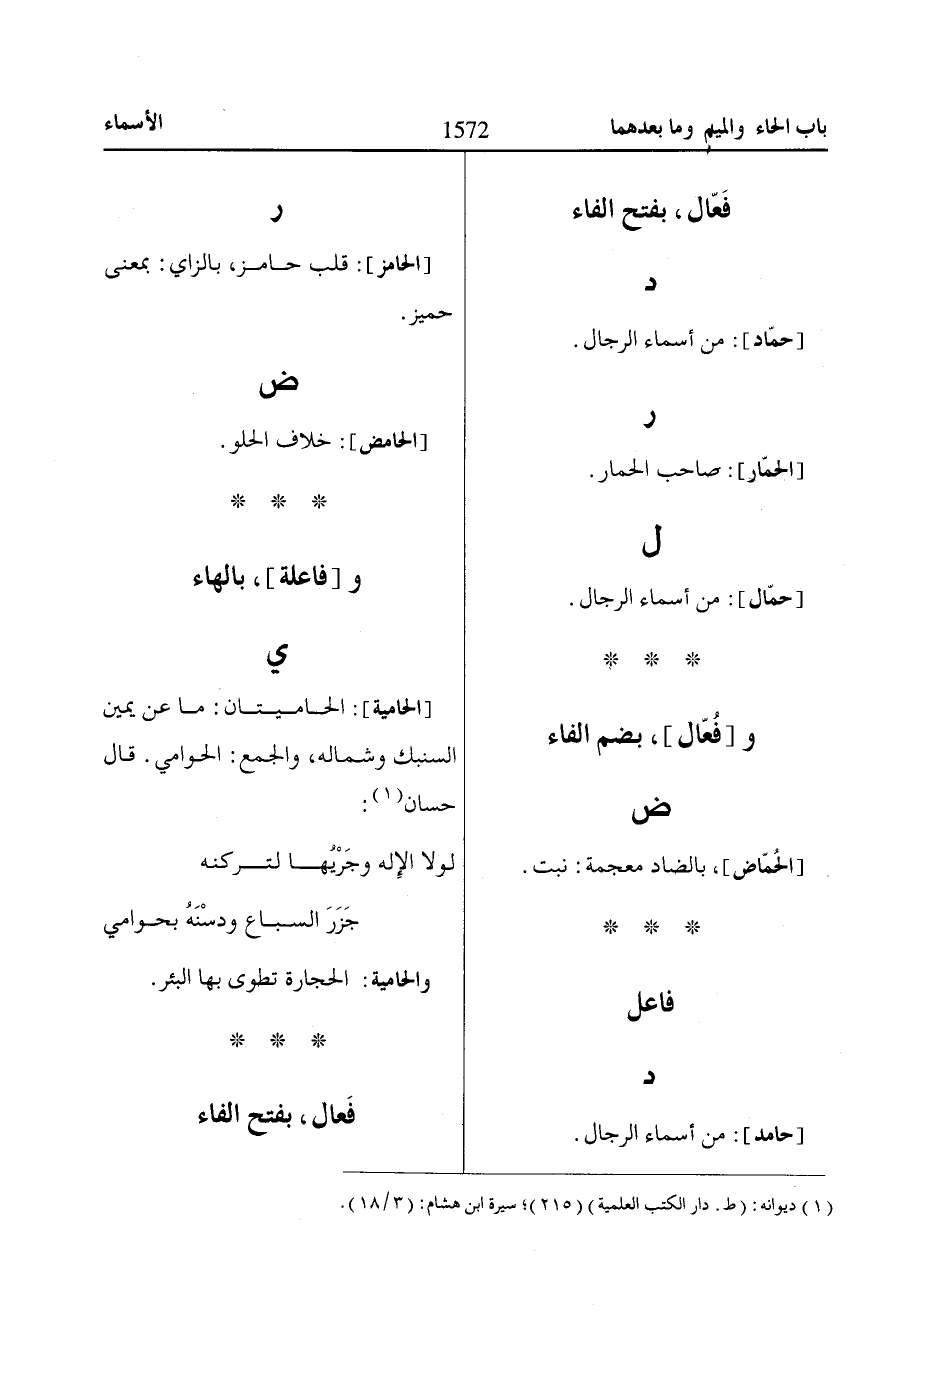 باب الحاء والميم وما بعدهما
1572
الأسماء
فَعّال، بفتح الفاء
د
[حمّاد]: من أسماء الرجال.
ر
[الحمّار]: صاحب الحمار.
ل
[حمّال]: من أسماء الرجال.
* * *
و [فُعّال]، بضم الفاء
ض
[الحُمّاض]، بالضاد معجمة: نبت.
* * *
فاعل
د
[حامد]: من أسماء الرجال.
ر
[الحامز]: قلب حامز، بالزاي: بمعنى
حميز.
ض
[الحامض]: خلاف الحلو.
* * *
و [فاعلة]، بالهاء
ي
[الحامية]: الحاميتان: ما عن يمين
السنبك وشماله، والجمع: الحوامي. قال
حسان(١):
لولا الإله وجَرْيُها لتركنه
جَزَرَ السباع ودسْنَهُ بحوامي
والحامية: الحجارة تطوى بها البئر.
* * *
فَعال، بفتح الفاء
(١) ديوانه: (ط. دار الكتب العلمية) (٢١٥)؛ سيرة ابن هشام: (٣/١٨).